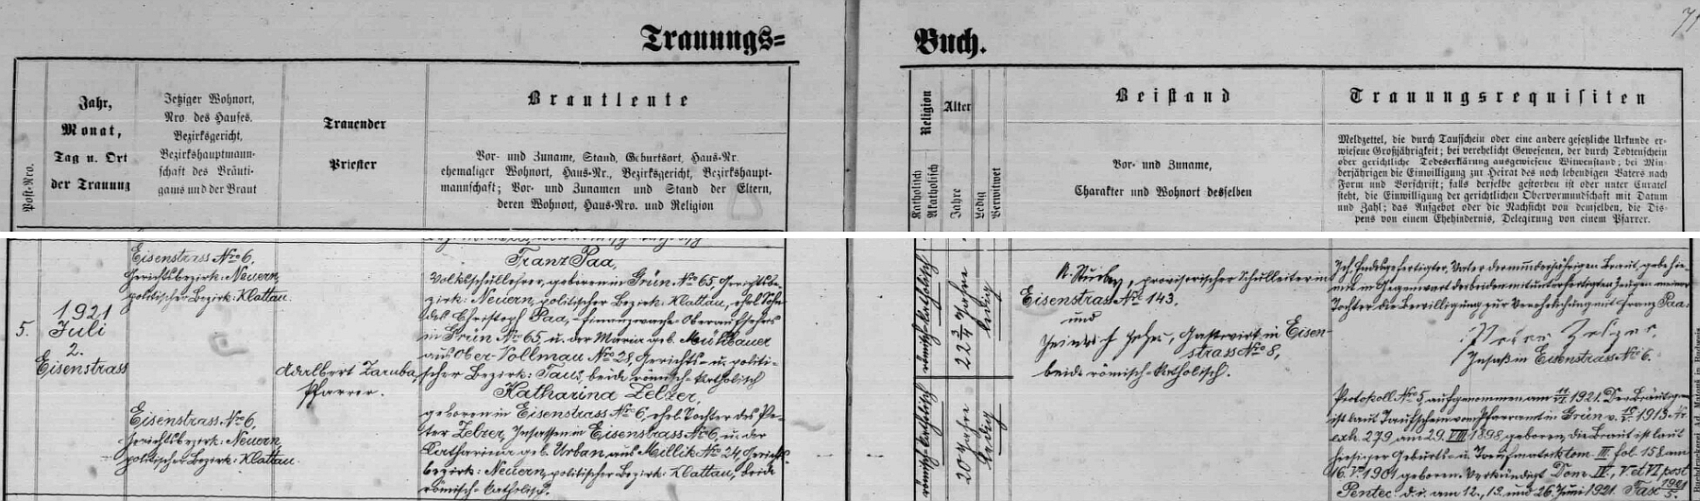 Trauungs=
Buch.
Post-Nro.
Jahr,
Monat,
Tag u. Ort
der Trauung
Jetziger Wohnort,
Nro des Hauses,
Bezirksgericht,
Bezirkshauptmann-
schaft des Bräuti-
gams und der Braut
Trauender
Priester
Brautleute
Vor- und Zuname, Stand, Geburtsort, Haus-Nr.
ehemaliger Wohnort, Haus-Nr., Bezirksgericht, Bezirkshaupt-
mannschaft; Vor- und Zunamen und Stand der Eltern,
deren Wohnort, Haus-Nro. und Religion
Religion
Katholisch
Akatholisch
Alter
Jahre
Ledig
Verwitwet
Beistand
Vor- und Zuname,
Charakter und Wohnort desselben
Trauungsrequisiten
Meldzettel, die durch Taufschein oder eine andere gesetzliche Urkunde er-
wiesene Großjährigkeit; bei verehelicht Gewesenen, der durch Todtenschein
oder gerichtliche Todeserklärung ausgewiesene Witwenstand; bei Min-
derjährigen die Einwilligung zur Heirat des noch lebendigen Vaters nach
Form und Vorschrift; falls derselbe gestorben ist oder unter Curatel
steht, die Einwilligung der gerichtlichen Obervormundschaft mit Datum
und Zahl; das Aufgebot oder die Nachsicht von demselben, die Dis-
pens von einem Ehehindernis, Delegirung von einem Pfarrer.
5.
1921
Juli
2.
Eisenstrass
Eisenstrass Nro 6,
Gerichtsbezirk: Neuern,
politischer Bezirk: Klattau.
Eisenstrass Nro 6,
Gerichtsbezirk: Neuern,
politischer Bezirk: Klattau.
Adalbert Zaruba,
Pfarrer.
Franz Paa,
Volksschullehrer, geboren in Grün Nro 65, Gerichtsbe-
zirk: Neuern, politischer Bezirk: Klattau, ehel. Sohn
des Christoph Paa, Finanzwache-Oberaufsehers
in Grün Nro 65, u. der Maria geb. Mühlbauer
aus Ober-Vollmau Nro 28 Gerichts- u. politi-
scher Bezirk: Taus, beide römisch-katholisch
Katharina Zelzer,
geboren in Eisenstrass Nro 6, ehel. Tochter des Pe-
ter Zelzer, Insassen in Eisenstrass Nro 6, u. der
Katharina geb. Urban aus Millik Nro 24, Gerichts-
bezirk: Neuern, politischer Bezirk: Klattau, beide
römisch-katholisch.
römisch-katholisch
22 3/4 Jahre
ledig
römisch-katholisch
20 Jahre
ledig
provisorischer Schulleiter in
Eisenstrass Nro 143,
und
Gastwirt in Eisen-
strass Nro 8,
beide römisch-katholisch.
Ich Endesgefertigter, Vater der minderjährigen Braut, gebe hie-
mit in Gegenwart der beiden mitunterfertigten Zeugen meiner
Tochter die Bewilligung zur Verehelichung mit Franz Paa.
Peter Zelzer
Insaß in Eisenstrass Nro 6.
Protokoll Nro 5, aufgenommen am 1921. Der Bräutigam
ist laut Taufschein vom Pfarramte in Grün
exh. 279, am 29. VIII 1898 geboren, die Braut ist laut
hiesiger Geburts- u. Taufmatrik tom. III fol. 158 am
16. V 1901 geboren. Verkündigt Dom. IV, V et VI post
Pentec. d. i. am 12., 19. und 26. Juni 1921.